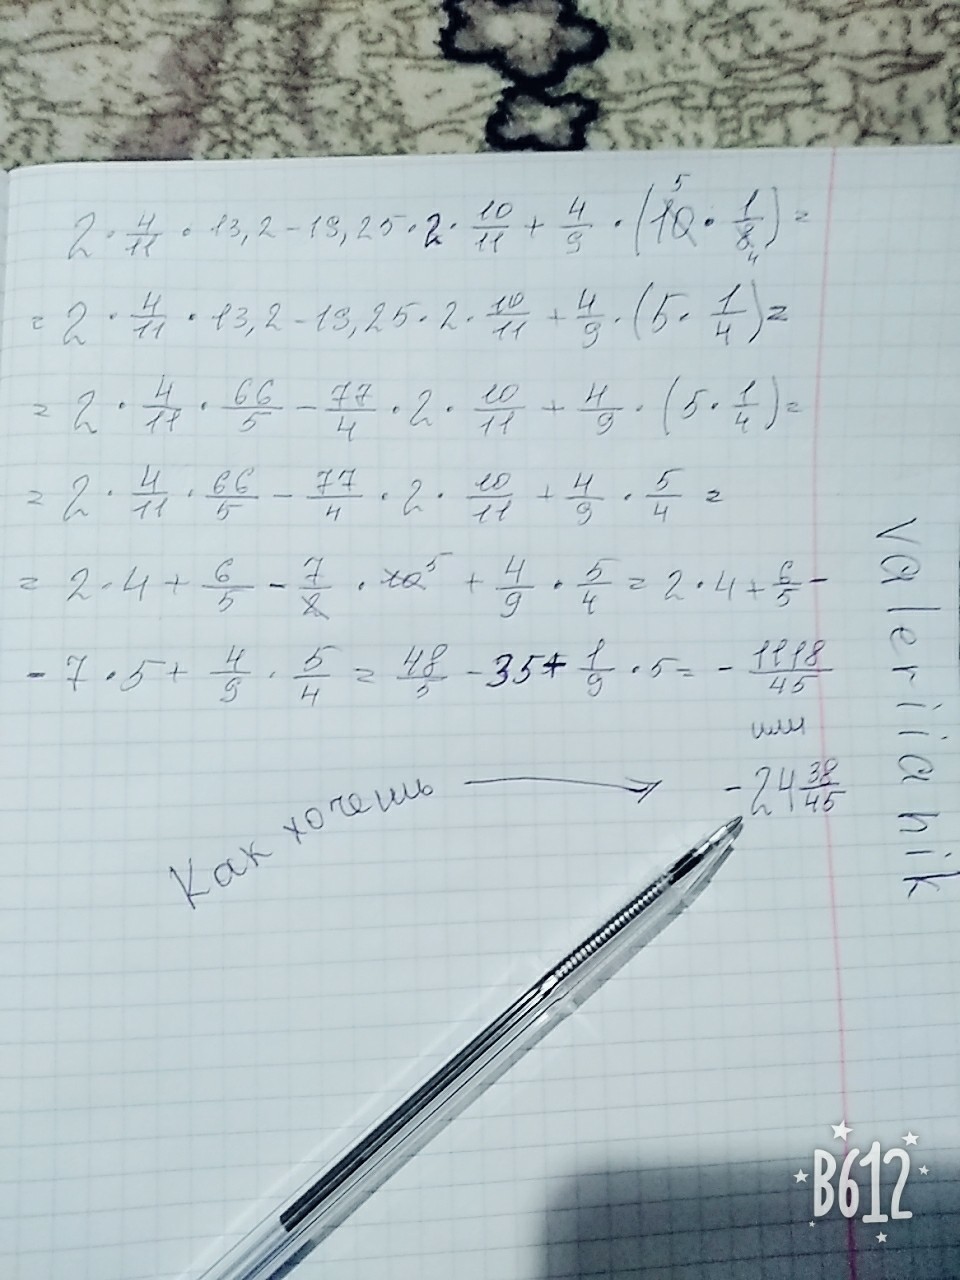 2 · 4/11 · 13,2 - 19,25 · 2 · 10/11 + 4/9 · (10 5 · 1/8 4) =
= 2 · 4/11 · 13,2 - 19,25 · 2 · 10/11 + 4/9 · (5 · 1/4) =
= 2 · 4/11 · 66/5 - 77/4 · 2 · 10/11 + 4/9 · (5 · 1/4) =
= 2 · 4/11 · 66/5 - 77/4 · 2 · 10/11 + 4/9 · 5/4 =
= 2 · 4 + 6/5 - 7/2 · 10 5 + 4/9 · 5/4 = 2 · 4 + 6/5 -
- 7 · 5 + 4/9 · 5/4 = 48/5 - 35 + 1/9 · 5 = - 1118/45
или
Как хочешь → - 24 38/45
Valeriiahik
B612